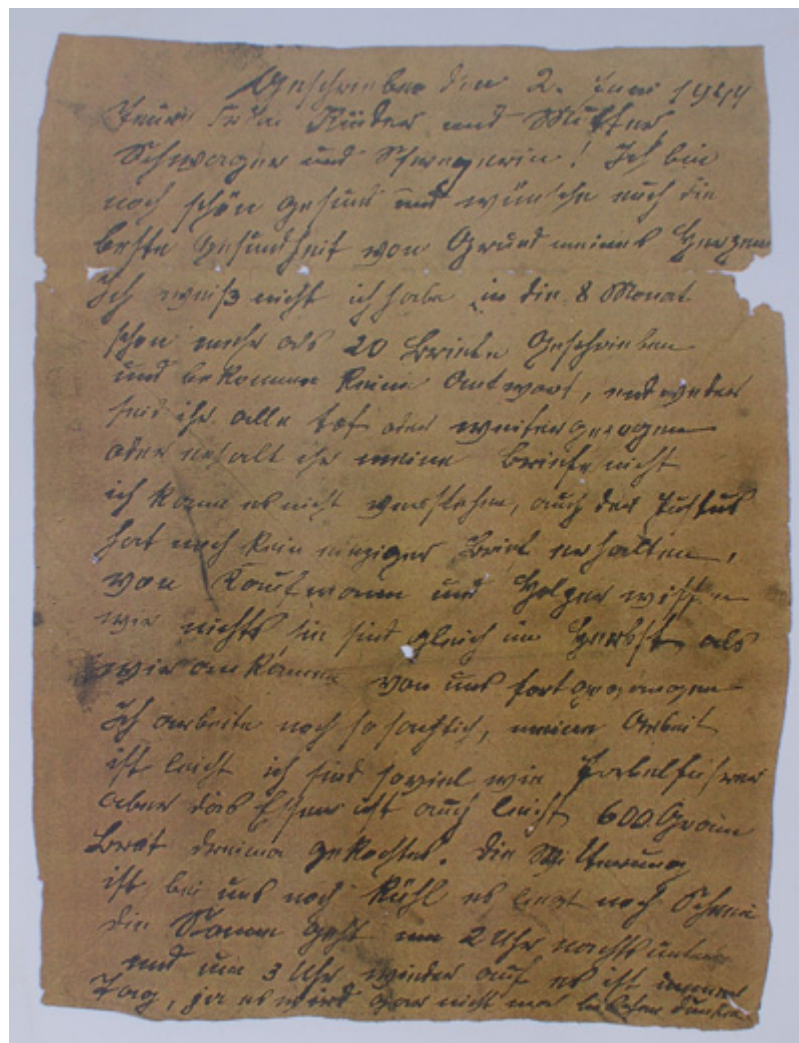 Geschrieben den 2. Juni 1944
Kinder und Mutter
Schwager und Schwegerin! Ich bin
noch schön gesund und wünsche euch die
beste Gesundheit von Grund meines Herzens
Ich weiß nicht ich habe in die 8 Monat
schon mehr als 20 Briefe Geschrieben
und bekomme keine Antwort, endweder
seid ihr alle tot oder weitergezogen
oder erhalt ihr meine Briefe nicht
ich kann es nicht verstehen, auch der
hat noch kein einziger Brief erhalten,
von Kaufmann und Holzer wissen
wir nichts sie sind gleich im Herbst, als
wir ankamen von uns fortgezogen
Ich arbeite noch so sachtich, meine Arbeit
ist leicht ich sind soviel wie
aber das Essen ist auch leicht 600 Gram
Brot dreima gekochtes. Die Witterung
ist bei uns noch kühl es liegt noch Schnee
die Sonne geht um 2 Uhr nachts unter
und um 3 Uhr wieder auf es ist immer
Tag, ja es wird gar nicht mal dunkel